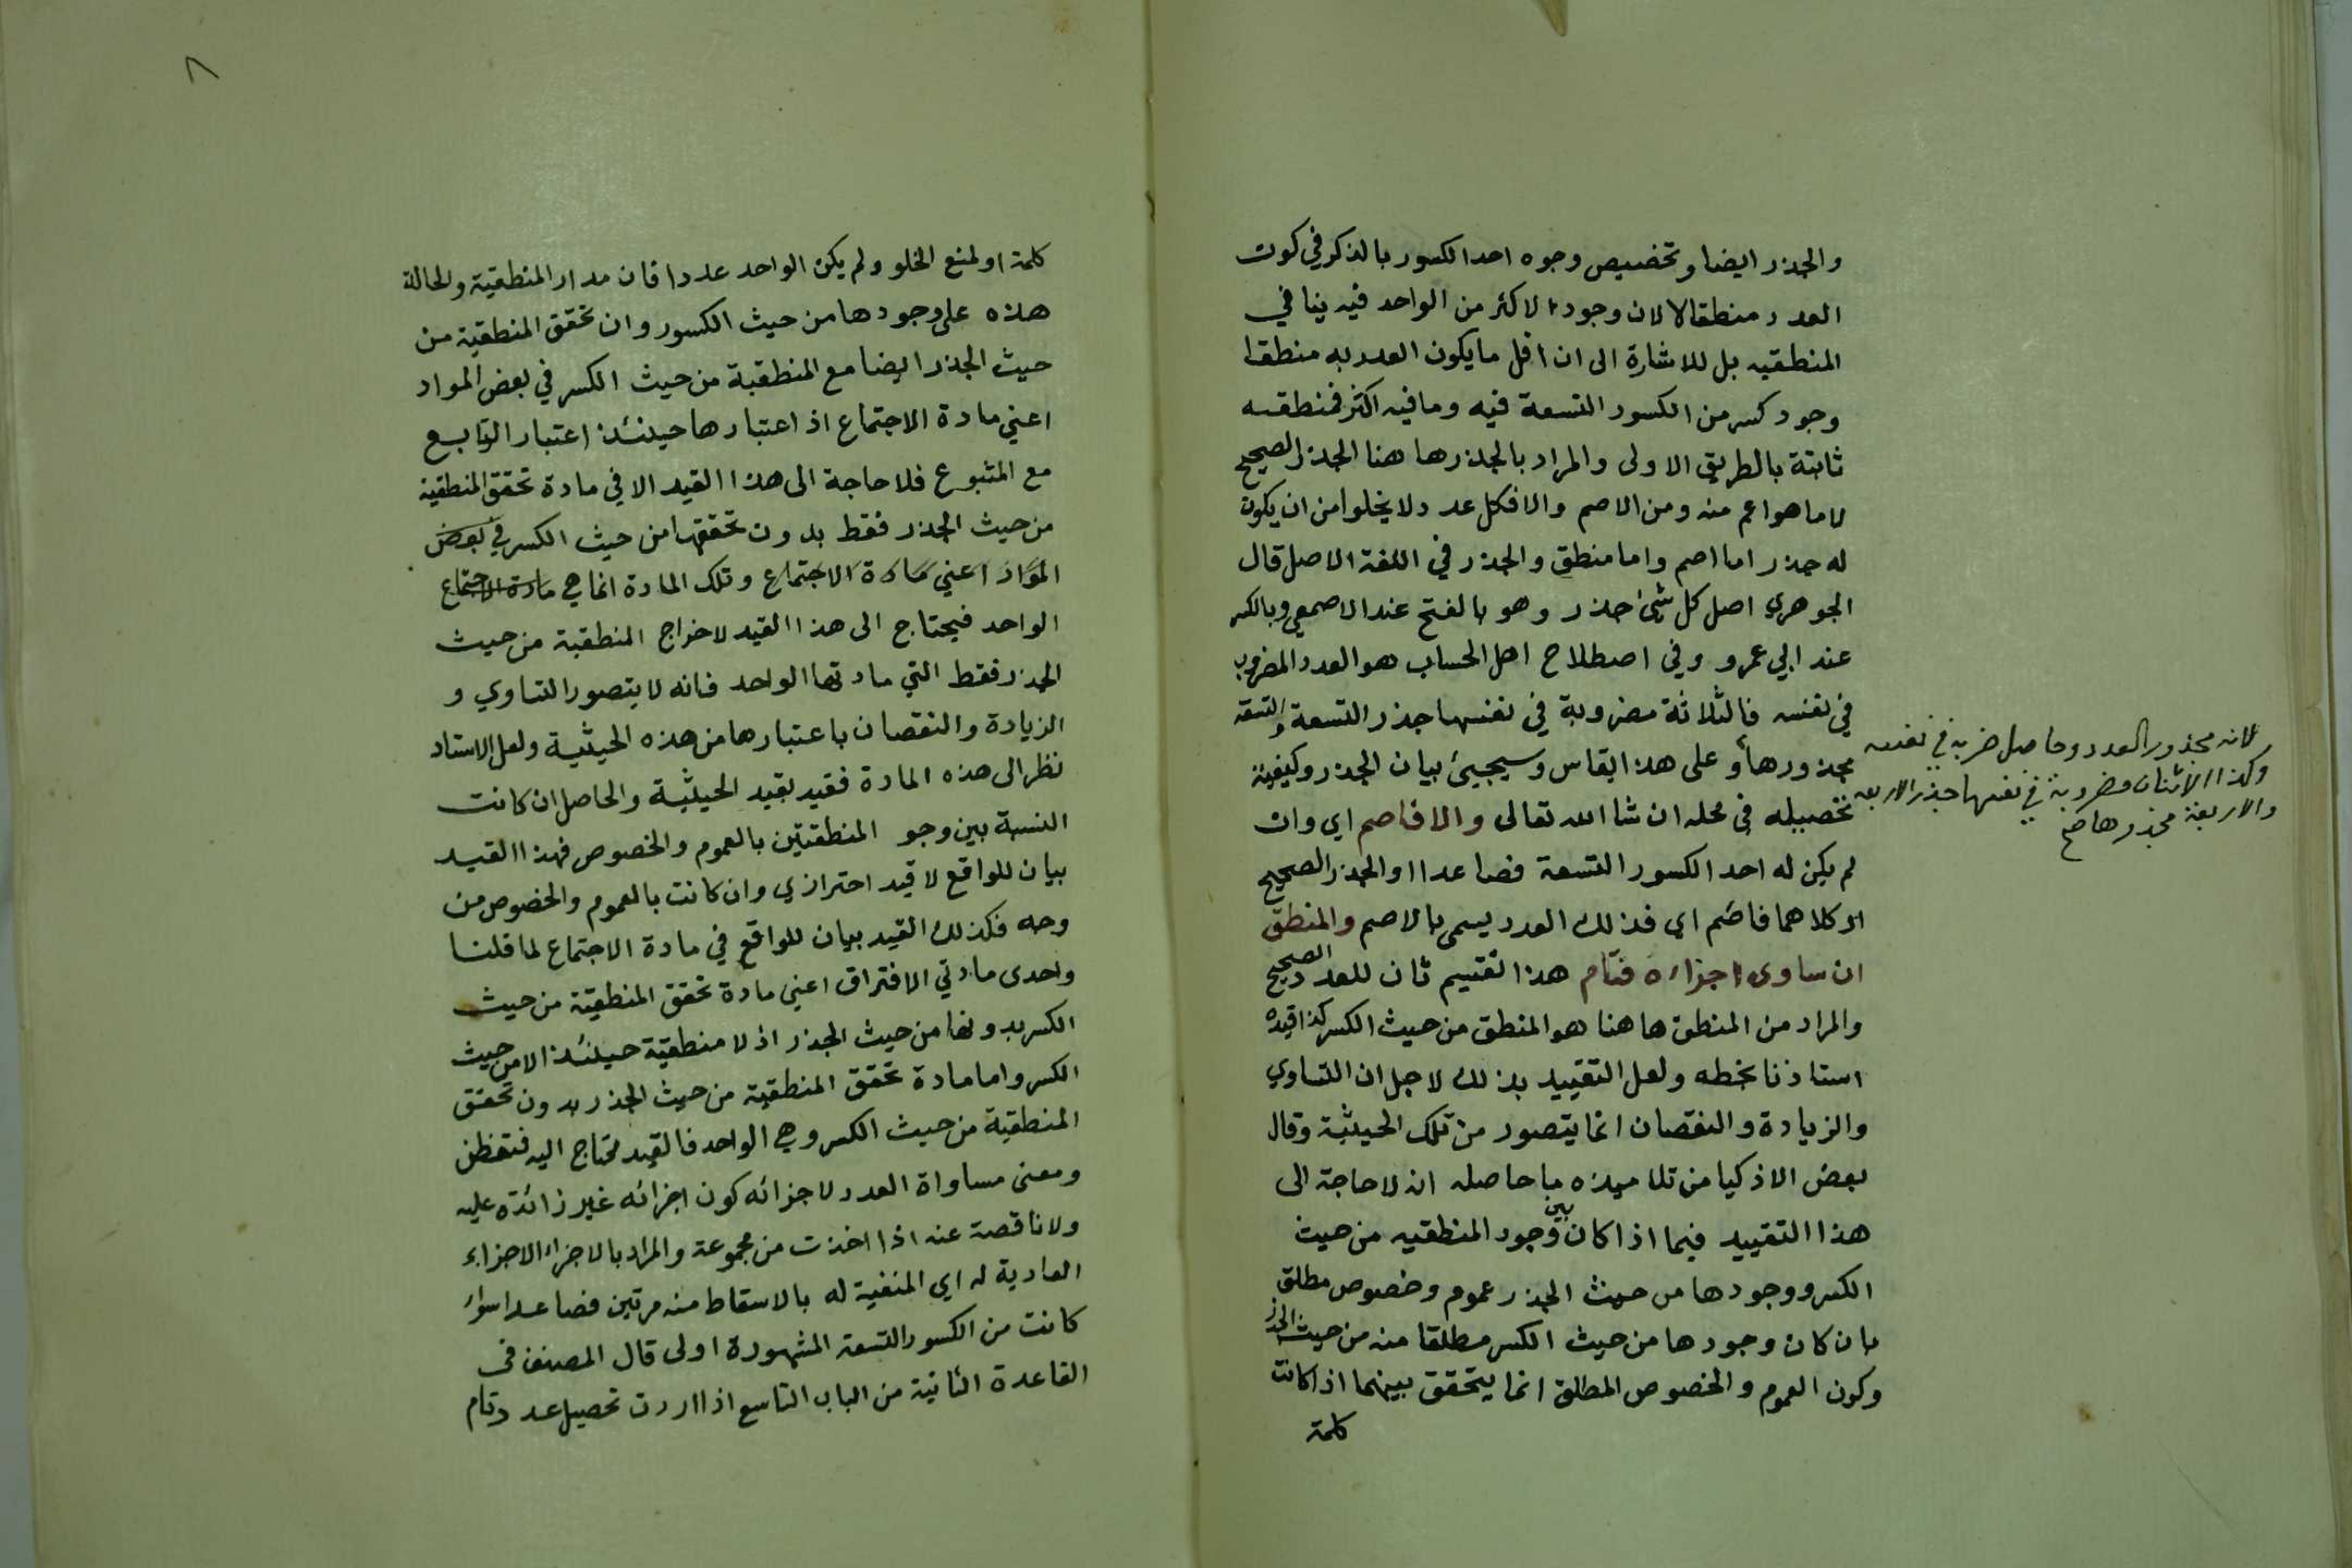 والجذر ايضا وتخصيص وجوه احد الكسور بالذكر في كون
العدد منطقا لا لان وجود الاكثر من الواحد فيه ينافي
المنطقيه بل للاشارة الى ان اقل ما يكون العدد به منطقا
وجود كسر من الكسور التسعة فيه وما فيه اكثر فمنطقيه
ثابتة بالطريق الاولى والمراد بالجذر ها هنا الجذر الصحيح
لا ما هو اعم منه ومن الاصم والا فكل عدد لا يخلوا من ان يكون
له جذر اما اصم واما منطق والجذر في اللغة الاصل قال
الجوهري اصل كل شئ جذر وهو بالفتح عند الاصمعي وبالكسر
عند ابي عمرو وفي اصطلاح اهل الحساب هو العدد المضروب
في نفسه فالثلاثة مضروبة في نفسها جذر التسعة والتسعة
مجذورها وعلى هذا يقاس وسيجيئ بيان الجذر وكيفية
تحصيله في محله ان شا الله تعالى والا فاصم اي وان
لم يكن له احد الكسور التسعة فصاعدا او الجذر الصحيح
او كلاهما فاصم اي فذلك العدد يسمى بالاصم والمنطق
ان ساوى اجزاءه فتام هذا تقسيم ثان للعدد الصحيح
والمراد من المنطق ها هنا هو المنطق من حيث الكسر كذا قيده
استاذنا بخطه ولعل التقييد بذلك لاجل ان التساوي
والزيادة والنقصان انما يتصور من تلك الحيثية وقال
بعض الاذكيا من تلاميذه ما حاصله انه لا حاجة الى
هذا التقييد فيما اذا كان بين وجود المنطقيه من حيث
الكسر ووجودها من حيث الجذر عموم وخصوص مطلق
بان كان وجودها من حيث الكسر مطلقا منه من حيث الجذر
وكون العموم والخصوص المطلق انما يتحقق بينهما اذا كانت
كلمة
لانه مجذور العدد وحاصل ضربه في نفسه
وكذا الاثنان مضروبة في نفسها جذر الاربعة
والاربعة مجذورها صح
٨
كلمة او لمنع الخلو ولم يكن الواحد عددا فان مدار المنطقية والحالة
هذه على وجودها من حيث الكسور وان تحقق المنطقية من
حيث الجذر ايضا مع المنطقية من حيث الكسر في بعض المواد
اعني مادة الاجتماع اذ اعتبارها حينئذ اعتبار التابع
مع المتبوع فلا حاجة الى هذا القيد الا في مادة تحقق المنطقية
من حيث الجذر فقط بدون تحققها من حيث الكسر في بعض
المواد اعني مادة الاجتماع وتلك المادة انما هي مادة الاجتماع
الواحد فيحتاج الى هذا القيد لاخراج المنطقية من حيث
الجذر فقط التي مادتها الواحد فانه لا يتصور التساوي و
الزيادة والنقصان باعتبارها من هذه الحيثية ولعل الاستاد
نظر الى هذه المادة فقيد بقيد الحيثية والحاصل ان كانت
النسبة بين وجو المنطقتين بالعموم والخصوص فهذا القيد
بيان للواقع لا قيد احترازي وان كانت بالعموم والخصوص من
وجه فكذلك القيد بيان للواقع في مادة الاجتماع لما قلنا
واحدى مادتي الافتراق اعني مادة تحقق المنطقية من حيث
الكسر بدونها من حيث الجذر اذ لا منطقية حينئذ الا من حيث
الكسر واما مادة تحقق المنطقية من حيث الجذر بدون تحقق
المنطقية من حيث الكسر وهي الواحد فالقيد محتاج اليه فتفطن
ومعنى مساواة العدد لاجزائه كون اجزائه غير زائدة عليه
ولا ناقصة عنه اذا اخذت من مجموعة والمراد بالاجزاء الاجزاء
العادية له اي المنفية له بالاسقاط منه مرتين فصاعدا سواء
كانت من الكسور التسعة المشهورة اولى قال المصنف في
القاعدة الثانية من الباب التاسع اذا اردت تحصيل عدد تام